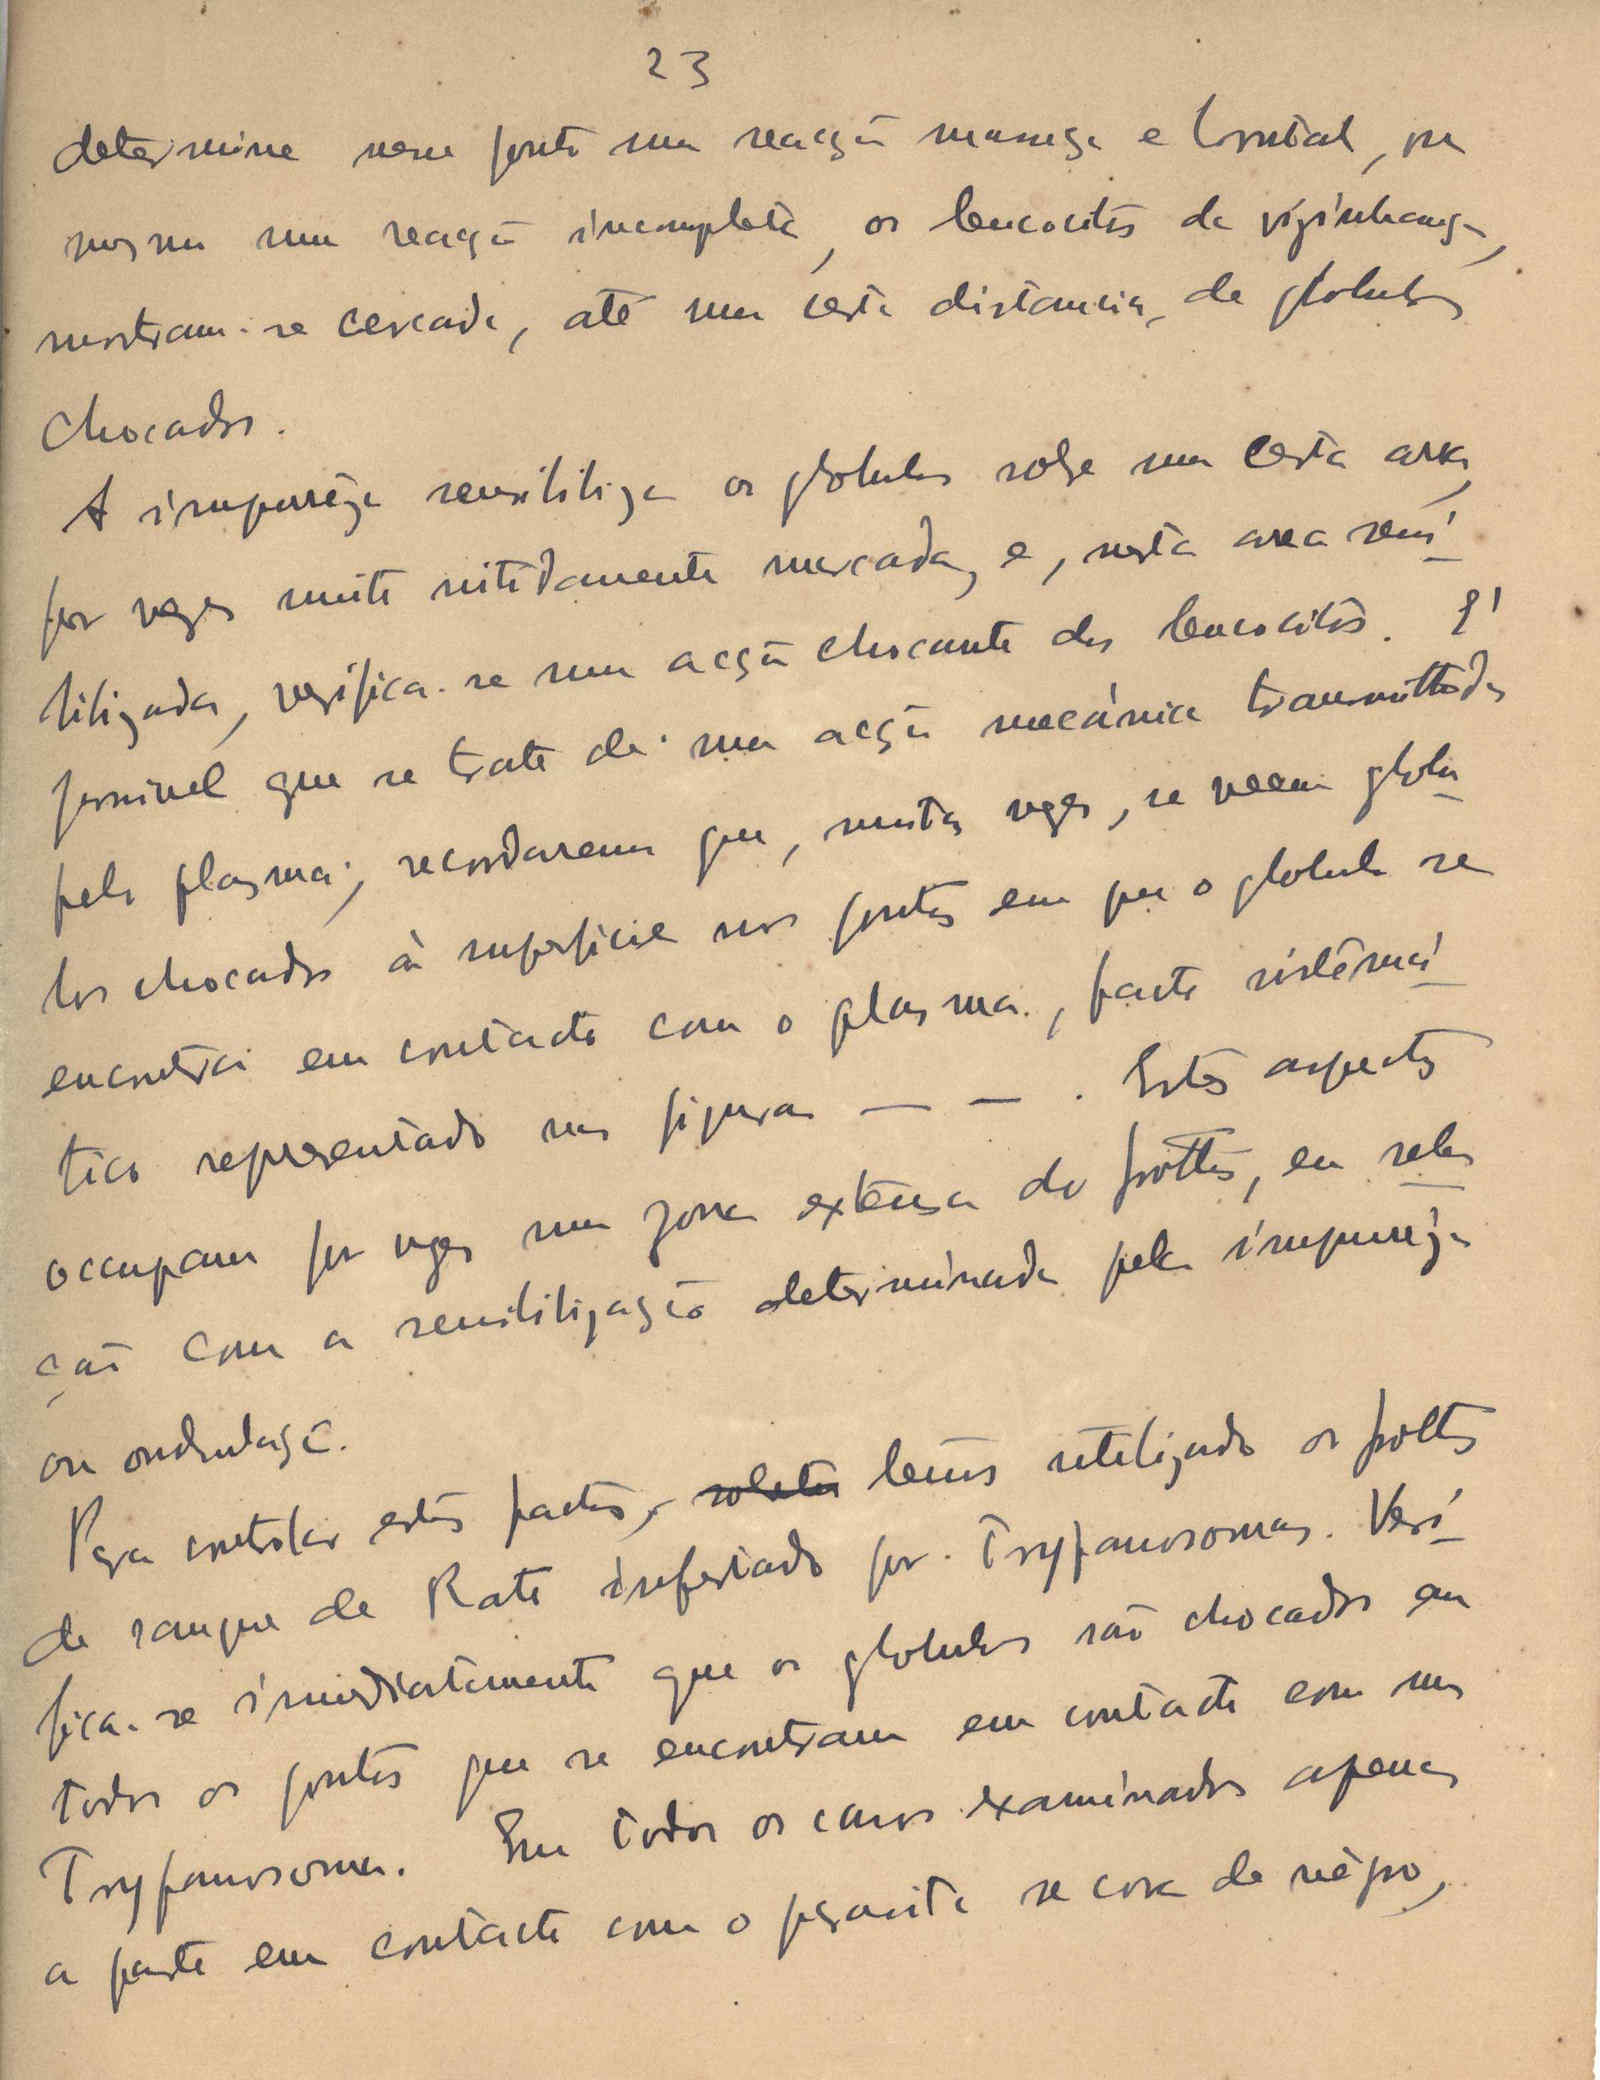 23
determine nesse ponto uma reacção massiça e brutal, ou
mesmo uma reacção incompleta, os leucocitos da vizinhança,
mostram-se cercados, até uma certa distancia, de globulos
chocados.
A impureza sensibiliza os globulos sobre uma certa area,
por vezes muito nitidamente marcada, e, nesta area sensi-
bilizada, verifica-se uma acção chocante dos leucocitos. E'
possivel que se trate de uma acção mecánica transmittida
pelo plasma; recordaremos que, muitas vezes, se veem globu-
los chocados à superficie nos pontos em que o globulo se
encontra em contacto com o plasma, facto sistemá-
tico representado nas figuras — — . Estes aspectos
occupam por vezes uma zona extensa do frottis, em rela-
ção com a sensibilização determinada pela impureza
ou ondulação.
Para controlar estes factos, temos utilizado os frottis
de sangue de Rato infectado por Trypanosomas. Veri-
fica-se immediatamente que os globulos são chocados em
todos os pontos que se encontram em contacto com um
Trypanosoma. Em todos os casos examinados apenas
a parte em contacto com o parasita se cora de négro,